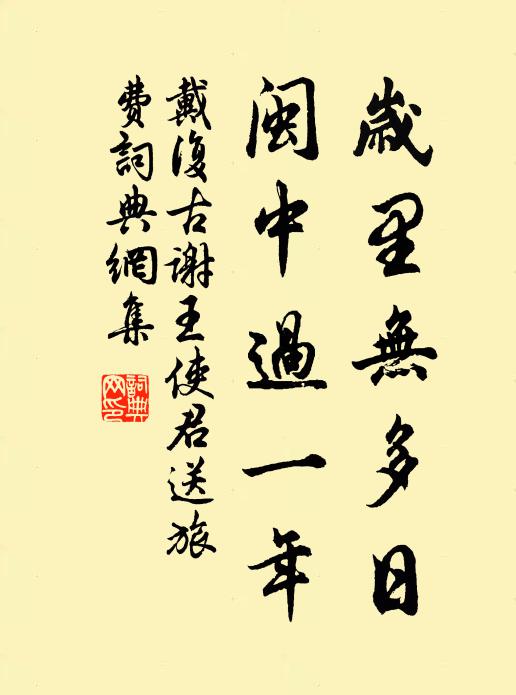 歲里無多日
閩中過一年
戴復古謝王使君送旅
費詞典網集
詞典網印